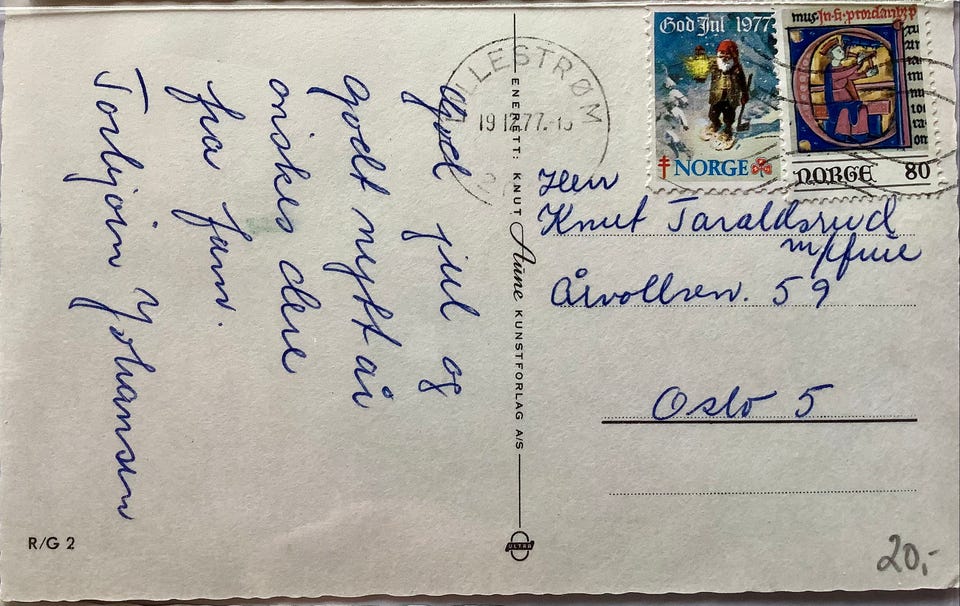 God jul og
godt nytt år
ønskes dere
fra fam.
Torbjørn Johansen
R/G 2
ENERETT: KNUT Aune KUNSTFORLAG A/S
ULTRA
LLESTRØM
19 12 77.-15
God Jul 1977
NORGE
NORGE 80
Herr
Knut Taraldsrud
m/frue
Årvollvn. 59
Oslo 5
20,-